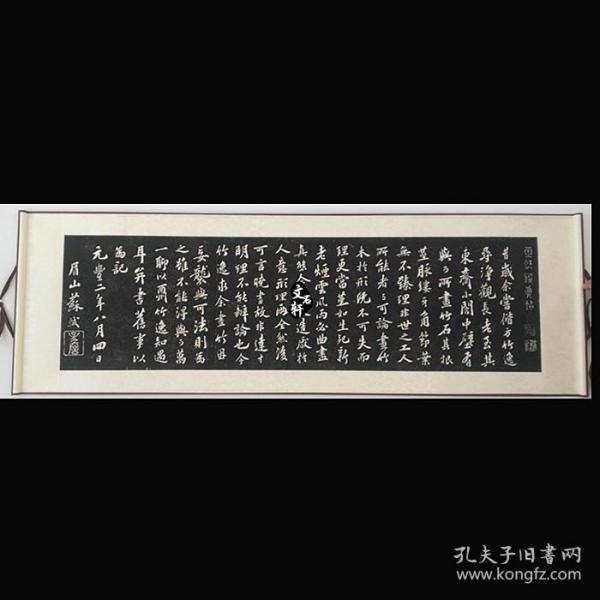 昔歲余嘗偕方竹逸
尋淨觀長老至其
東齋小閣中壁有
與可所畫竹石其根
莖脈縷牙角節葉
無不臻理非世之工人
所能者與可論畫竹
木於形既不可失而
理更當生死新
老煙雲風雨必曲盡
真態造厭於
人意形理兩全然後
可言曉畫故非達才
明理不能辯論也今
竹逸求余畫竹因
妄襲與可法則為
之雖不能得其萬
一聊以爾竹逸知遇
耳并書舊事以
為記
元豐二年八月四日
眉山蘇軾
文軒
孔夫子旧書网
www.kongfz.com